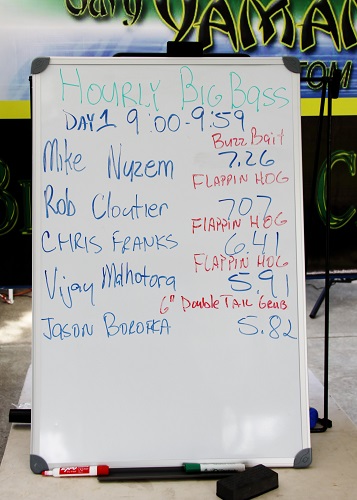 Gary YAMA
.COM
HOURLY BIG BASS
DAY 1 9:00-9:59
Buzz Bait
Mike Nyzem 7.26
FLAPPIN HOG
Rob Cloutier 7.07
FLAPPIN HOG
CHRIS FRANKS 6.41
FLAPPIN HOG
Vijay Malhotora 5.91
6" Double TAIL Grub
JASON BOROFKA 5.82
EXPO